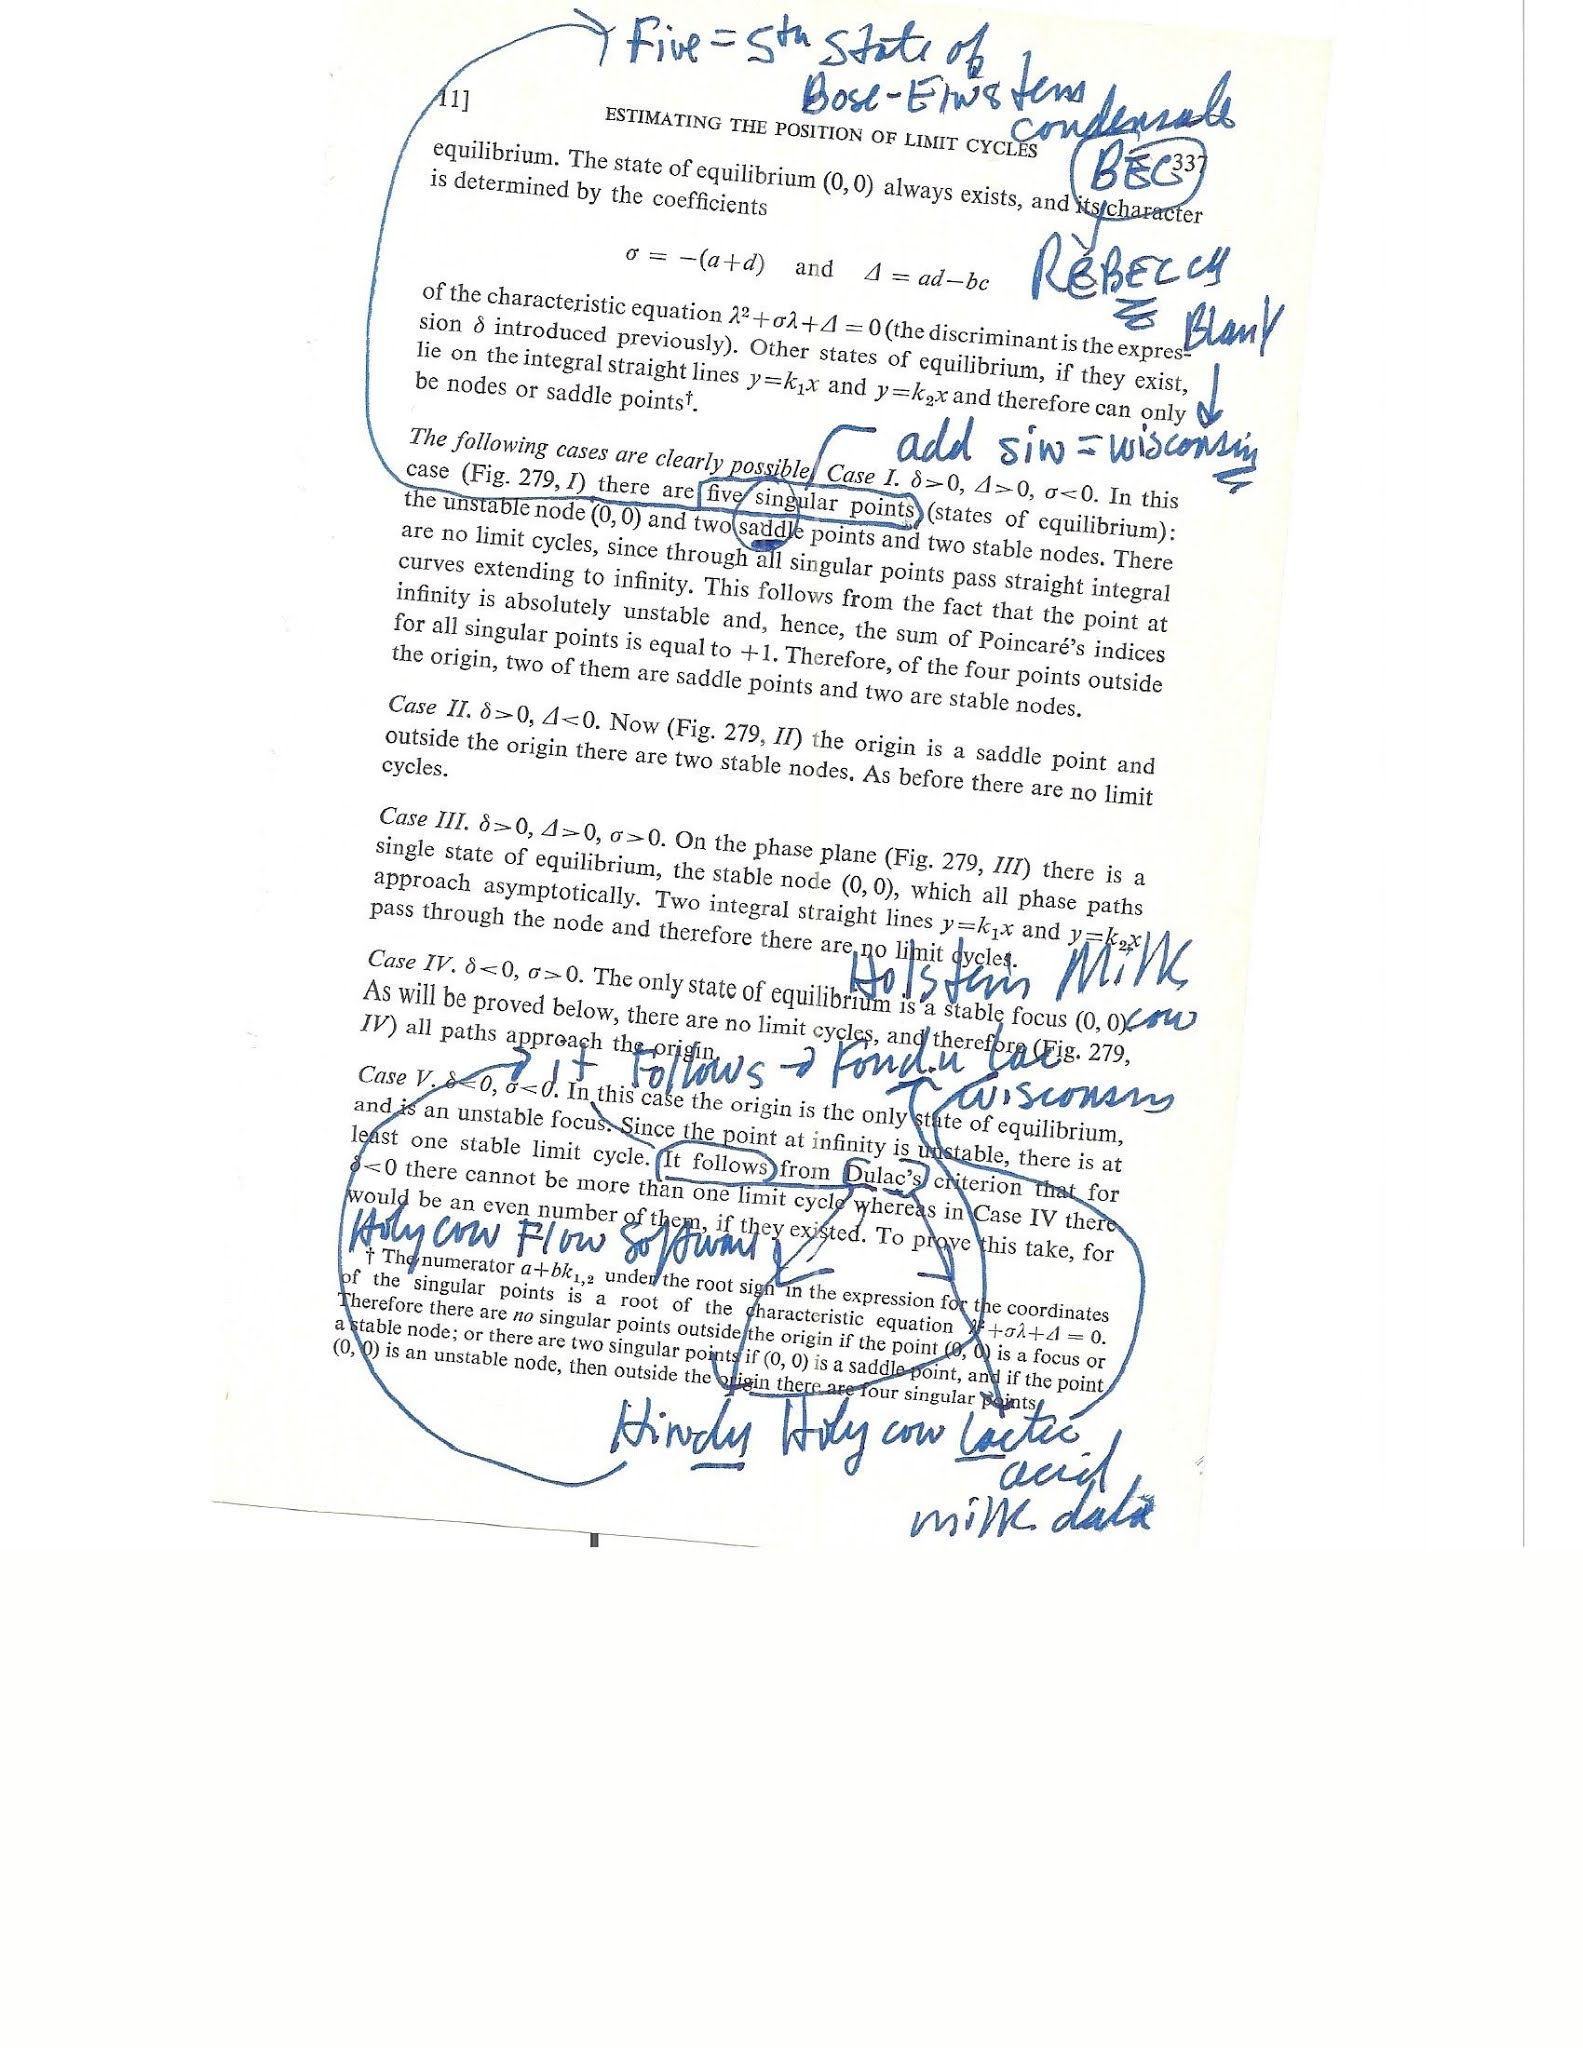 Five = 5th State of
Bose-Einstein
condensate
11]
ESTIMATING THE POSITION OF LIMIT CYCLES
337
BEC
equilibrium. The state of equilibrium (0, 0) always exists, and its character
is determined by the coefficients
σ = −(a+d) and Δ = ad−bc
REBECCA
of the characteristic equation λ²+σλ+Δ = 0 (the discriminant is the expres-
Blank
sion δ introduced previously). Other states of equilibrium, if they exist,
lie on the integral straight lines y=k₁x and y=k₂x and therefore can only
be nodes or saddle points†.
add sin = wisconsin
The following cases are clearly possible. Case I. δ>0, Δ>0, σ<0. In this
case (Fig. 279, I) there are five singular points (states of equilibrium):
the unstable node (0, 0) and two saddle points and two stable nodes. There
are no limit cycles, since through all singular points pass straight integral
curves extending to infinity. This follows from the fact that the point at
infinity is absolutely unstable and, hence, the sum of Poincaré's indices
for all singular points is equal to +1. Therefore, of the four points outside
the origin, two of them are saddle points and two are stable nodes.
Case II. δ>0, Δ<0. Now (Fig. 279, II) the origin is a saddle point and
outside the origin there are two stable nodes. As before there are no limit
cycles.
Case III. δ>0, Δ>0, σ>0. On the phase plane (Fig. 279, III) there is a
single state of equilibrium, the stable node (0, 0), which all phase paths
approach asymptotically. Two integral straight lines y=k₁x and y=k₂x
pass through the node and therefore there are no limit cycles.
Holstein Milk
cow
Case IV. δ<0, σ>0. The only state of equilibrium is a stable focus (0, 0)
As will be proved below, there are no limit cycles, and therefore (Fig. 279,
IV) all paths approach the origin.
it Follows → Fond.u lac
wisconsin
Case V. δ<0, σ<0. In this case the origin is the only state of equilibrium,
and is an unstable focus. Since the point at infinity is unstable, there is at
least one stable limit cycle. It follows from Dulac's criterion that for
δ<0 there cannot be more than one limit cycle whereas in Case IV there
would be an even number of them, if they existed. To prove this take, for
Holy cow Flow Software
† The numerator a+bk₁,₂ under the root sign in the expression for the coordinates
of the singular points is a root of the characteristic equation λ²+σλ+Δ = 0.
Therefore there are no singular points outside the origin if the point (0, 0) is a focus or
a stable node; or there are two singular points if (0, 0) is a saddle point, and if the point
(0, 0) is an unstable node, then outside the origin there are four singular points.
Hindu Holy cow lactic
acid
milk data